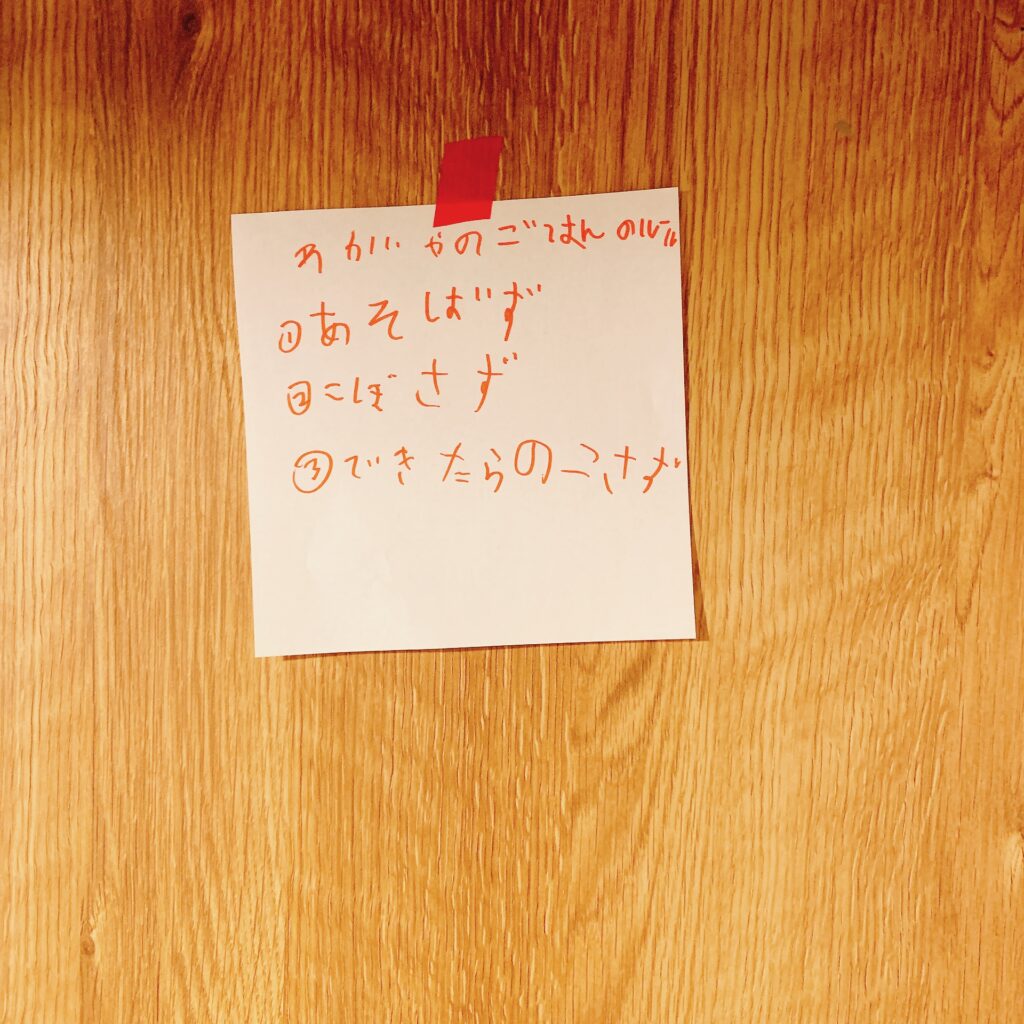 わがやのごはんのルール
①あそばず
②こぼさず
③できたらのこさず